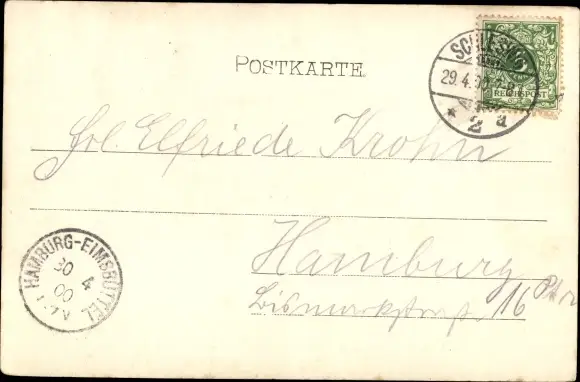 POSTKARTE
SCHLESWIG
29.4.00
* 2 a
REICHSPOST
Frl. Elfriede Krohn
Hamburg
Bismarckstrasse 16
HAMBURG-EIMSBÜTTEL
30
4
00